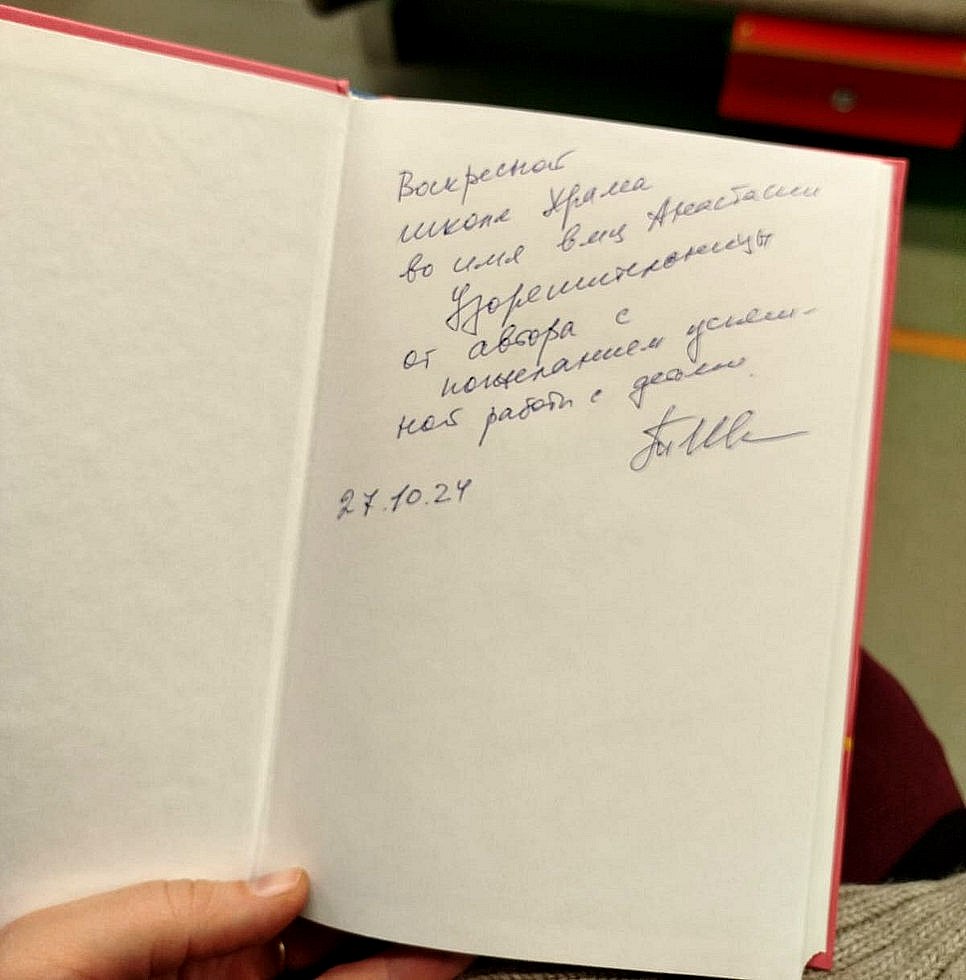 Воскресной
школе Храма
во имя вмц Анастасии
Узорешительницы
от автора с
пожеланием успеш-
ной работы с детьми.
27.10.24